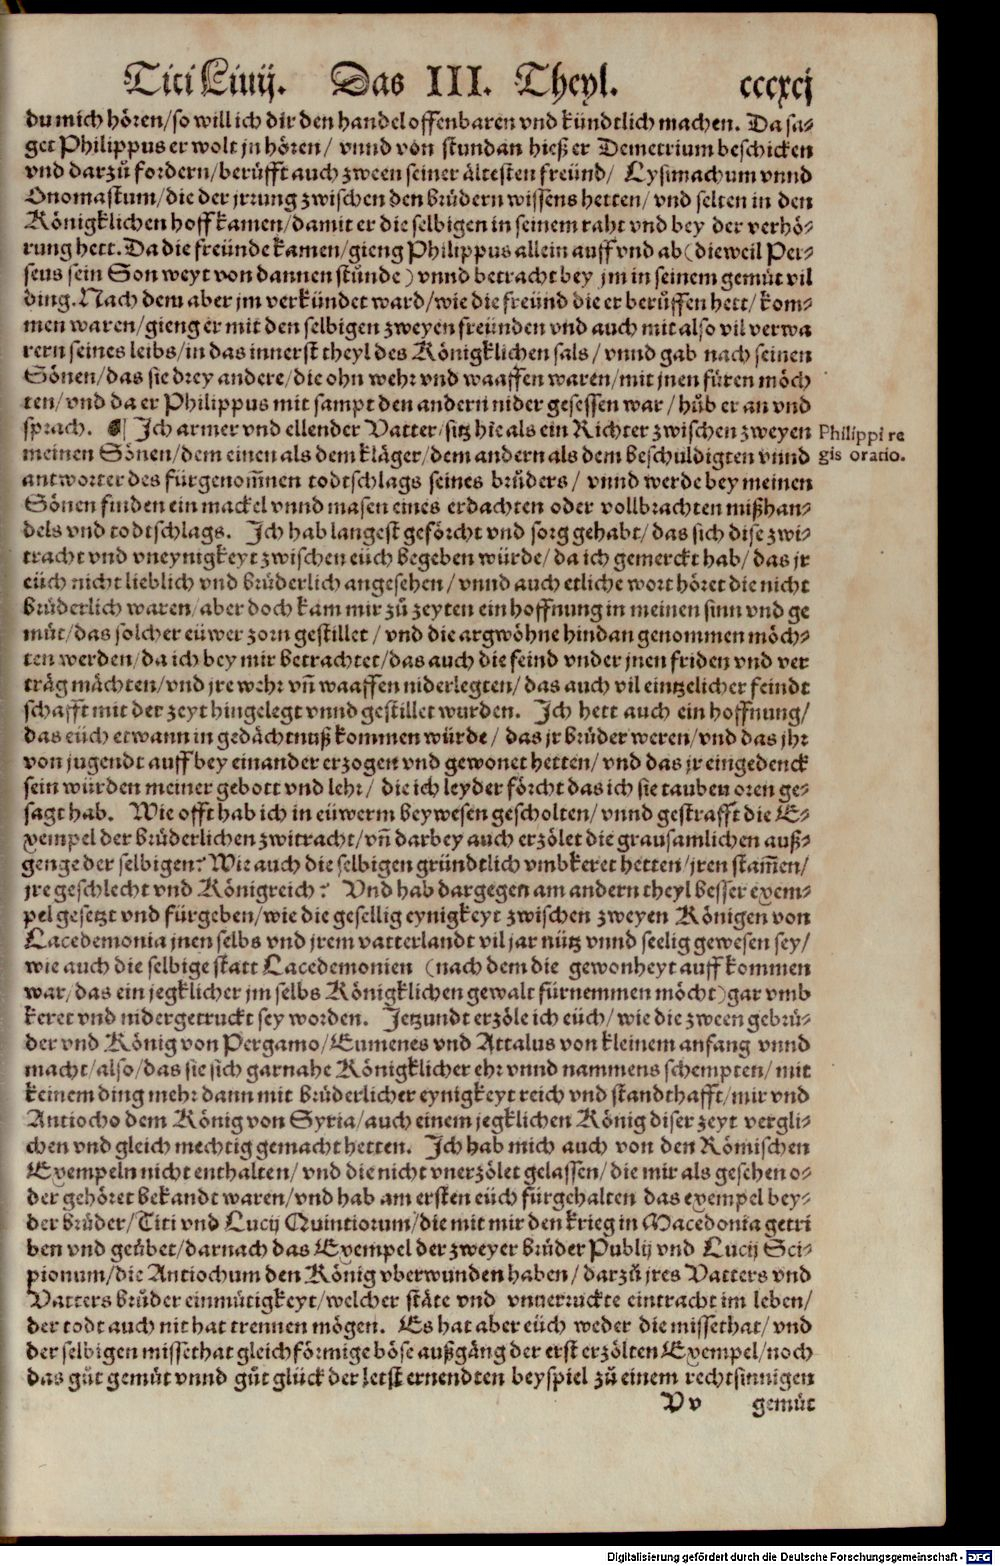 Titi Liuij. Das III. Theyl. cccxcj
du mich hören/so will ich dir den handel offenbaren vnd kündtlich machen. Da sa⸗
get Philippus er wolt jn hören/ vnnd von stundan hieß er Demetrium beschicken
vnd darzů fordern/berůfft auch zween seiner ältesten freünd/ Lysimachum vnnd
Onomastum/die der jrrung zwischen den brůdern wissens hetten/ vnd selten in den
Königklichen hoff kamen/damit er die selbigen in seinem raht vnd bey der verhö⸗
rung hett. Da die freünde kamen/gieng Philippus allein auff vnd ab (dieweil Per⸗
seus sein Son weyt von dannen stůnde) vnnd betracht bey jm in seinem gemůt vil
ding. Nach dem aber jm verkündet ward/wie die freünd die er berůffen hett/ kom⸗
men waren/gieng er mit den selbigen zweyen freünden vnd auch mit also vil verwa
rern seines leibs/in das innerst theyl des Königklichen sals/ vnnd gab nach seinen
Sönen/das sie drey andere/die ohn wehr vnd waaffen waren/mit jnen fůren möch
ten/vnd da er Philippus mit sampt den andern nider gesessen war/ hůb er an vnd
sprach. ¶ Ich armer vnd ellender Vatter/sitz hie als ein Richter zwischen zweyen
meinen Sönen/dem einen als dem kläger/dem andern als dem beschuldigten vnnd
antworter des fürgenom̃nen todtschlags seines brůders/ vnnd werde bey meinen
Sönen finden ein mackel vnnd masen eines erdachten oder vollbrachten mißhan⸗
dels vnd todtschlags. Ich hab langest geförcht vnd sorg gehabt/das sich dise zwi⸗
tracht vnd vneynigkeyt zwischen eüch begeben würde/da ich gemerckt hab/das jr
eüch nicht lieblich vnd brůderlich angesehen/ vnnd auch etliche wort höret die nicht
brůderlich waren/aber doch kam mir zů zeyten ein hoffnung in meinen sinn vnd ge
můt/das solcher eüwer zorn gestillet/ vnd die argwöhne hindan genommen möch⸗
ten werden/da ich bey mir betrachtet/das auch die feind vnder jnen friden vnd ver
träg mächten/vnd jre wehr vñ waaffen niderlegten/das auch vil eintzelicher feindt
schafft mit der zeyt hingelegt vnnd gestillet wurden. Ich hett auch ein hoffnung/
das eüch etwann in gedächtnuß kommen würde/ das jr brůder weren/vnd das jhr
von jugendt auff bey einander erzogen vnd gewonet hetten/ vnd das jr eingedenck
sein würden meiner gebott vnd lehr/ die ich leyder förcht das ich sie tauben oren ge⸗
sagt hab. Wie offt hab ich in eüwerm beywesen gescholten/ vnnd gestrafft die E⸗
xempel der brůderlichen zwitracht/vñ darbey auch erzölet die grausamlichen auß⸗
genge der selbigen? Wie auch die selbigen gründtlich vmbkeret hetten/jren stam̃en/
jre geschlecht vnd Königreich? Vnd hab dargegen am andern theyl besser exem⸗
pel gesetzt vnd fürgeben/wie die gesellig eynigkeyt zwischen zweyen Königen von
Lacedemonia jnen selbs vnd jrem vatterlandt vil jar nütz vnnd seelig gewesen sey/
wie auch die selbige statt Lacedemonien (nach dem die gewonheyt auff kommen
war/das ein jegklicher jm selbs Königklichen gewalt fürnemmen möcht) gar vmb
keret vnd nidergetruckt sey worden. Jetzundt erzöle ich eüch/wie die zween gebrů⸗
der vnd König von Pergamo/Eumenes vnd Attalus von kleinem anfang vnnd
macht/also/das sie sich gar nahe Königklicher ehr vnnd nammens schempten/ mit
keinem ding mehr dann mit brůderlicher eynigkeyt reich vnd standthafft/mir vnd
Antiocho dem König von Syria/auch einem jegklichen König diser zeyt vergli⸗
chen vnd gleich mechtig gemacht hetten. Ich hab mich auch von den Römischen
Exempeln nicht enthalten/ vnd die nicht vnerzölet gelassen/die mir als gesehen o⸗
der gehöret bekandt waren/vnd hab am ersten eüch fürgehalten das exempel bey⸗
der brůder/Titi vnd Lucij Quintiorum/die mit mir den krieg in Macedonia getri
ben vnd geübet/darnach das Exempel der zweyer brůder Publij vnd Lucij Sci⸗
pionum/die Antiochum den König vberwunden haben/ darzů jres Vatters vnd
Vatters brůder einmůtigkeyt/welcher stäte vnd vnuerruckte eintracht im leben/
der todt auch nit hat trennen mögen. Es hat aber eüch weder die missethat/ vnd
der selbigen missethat gleichförmige böse außgäng der erst erzölten Exempel/noch
das gůt gemůt vnnd gůt glück der letst ernendten beyspiel zů einem rechtsinnigen
Vv gemůt
Philippi re
gis oratio.
Digitalisierung gefördert durch die Deutsche Forschungsgemeinschaft - DFG